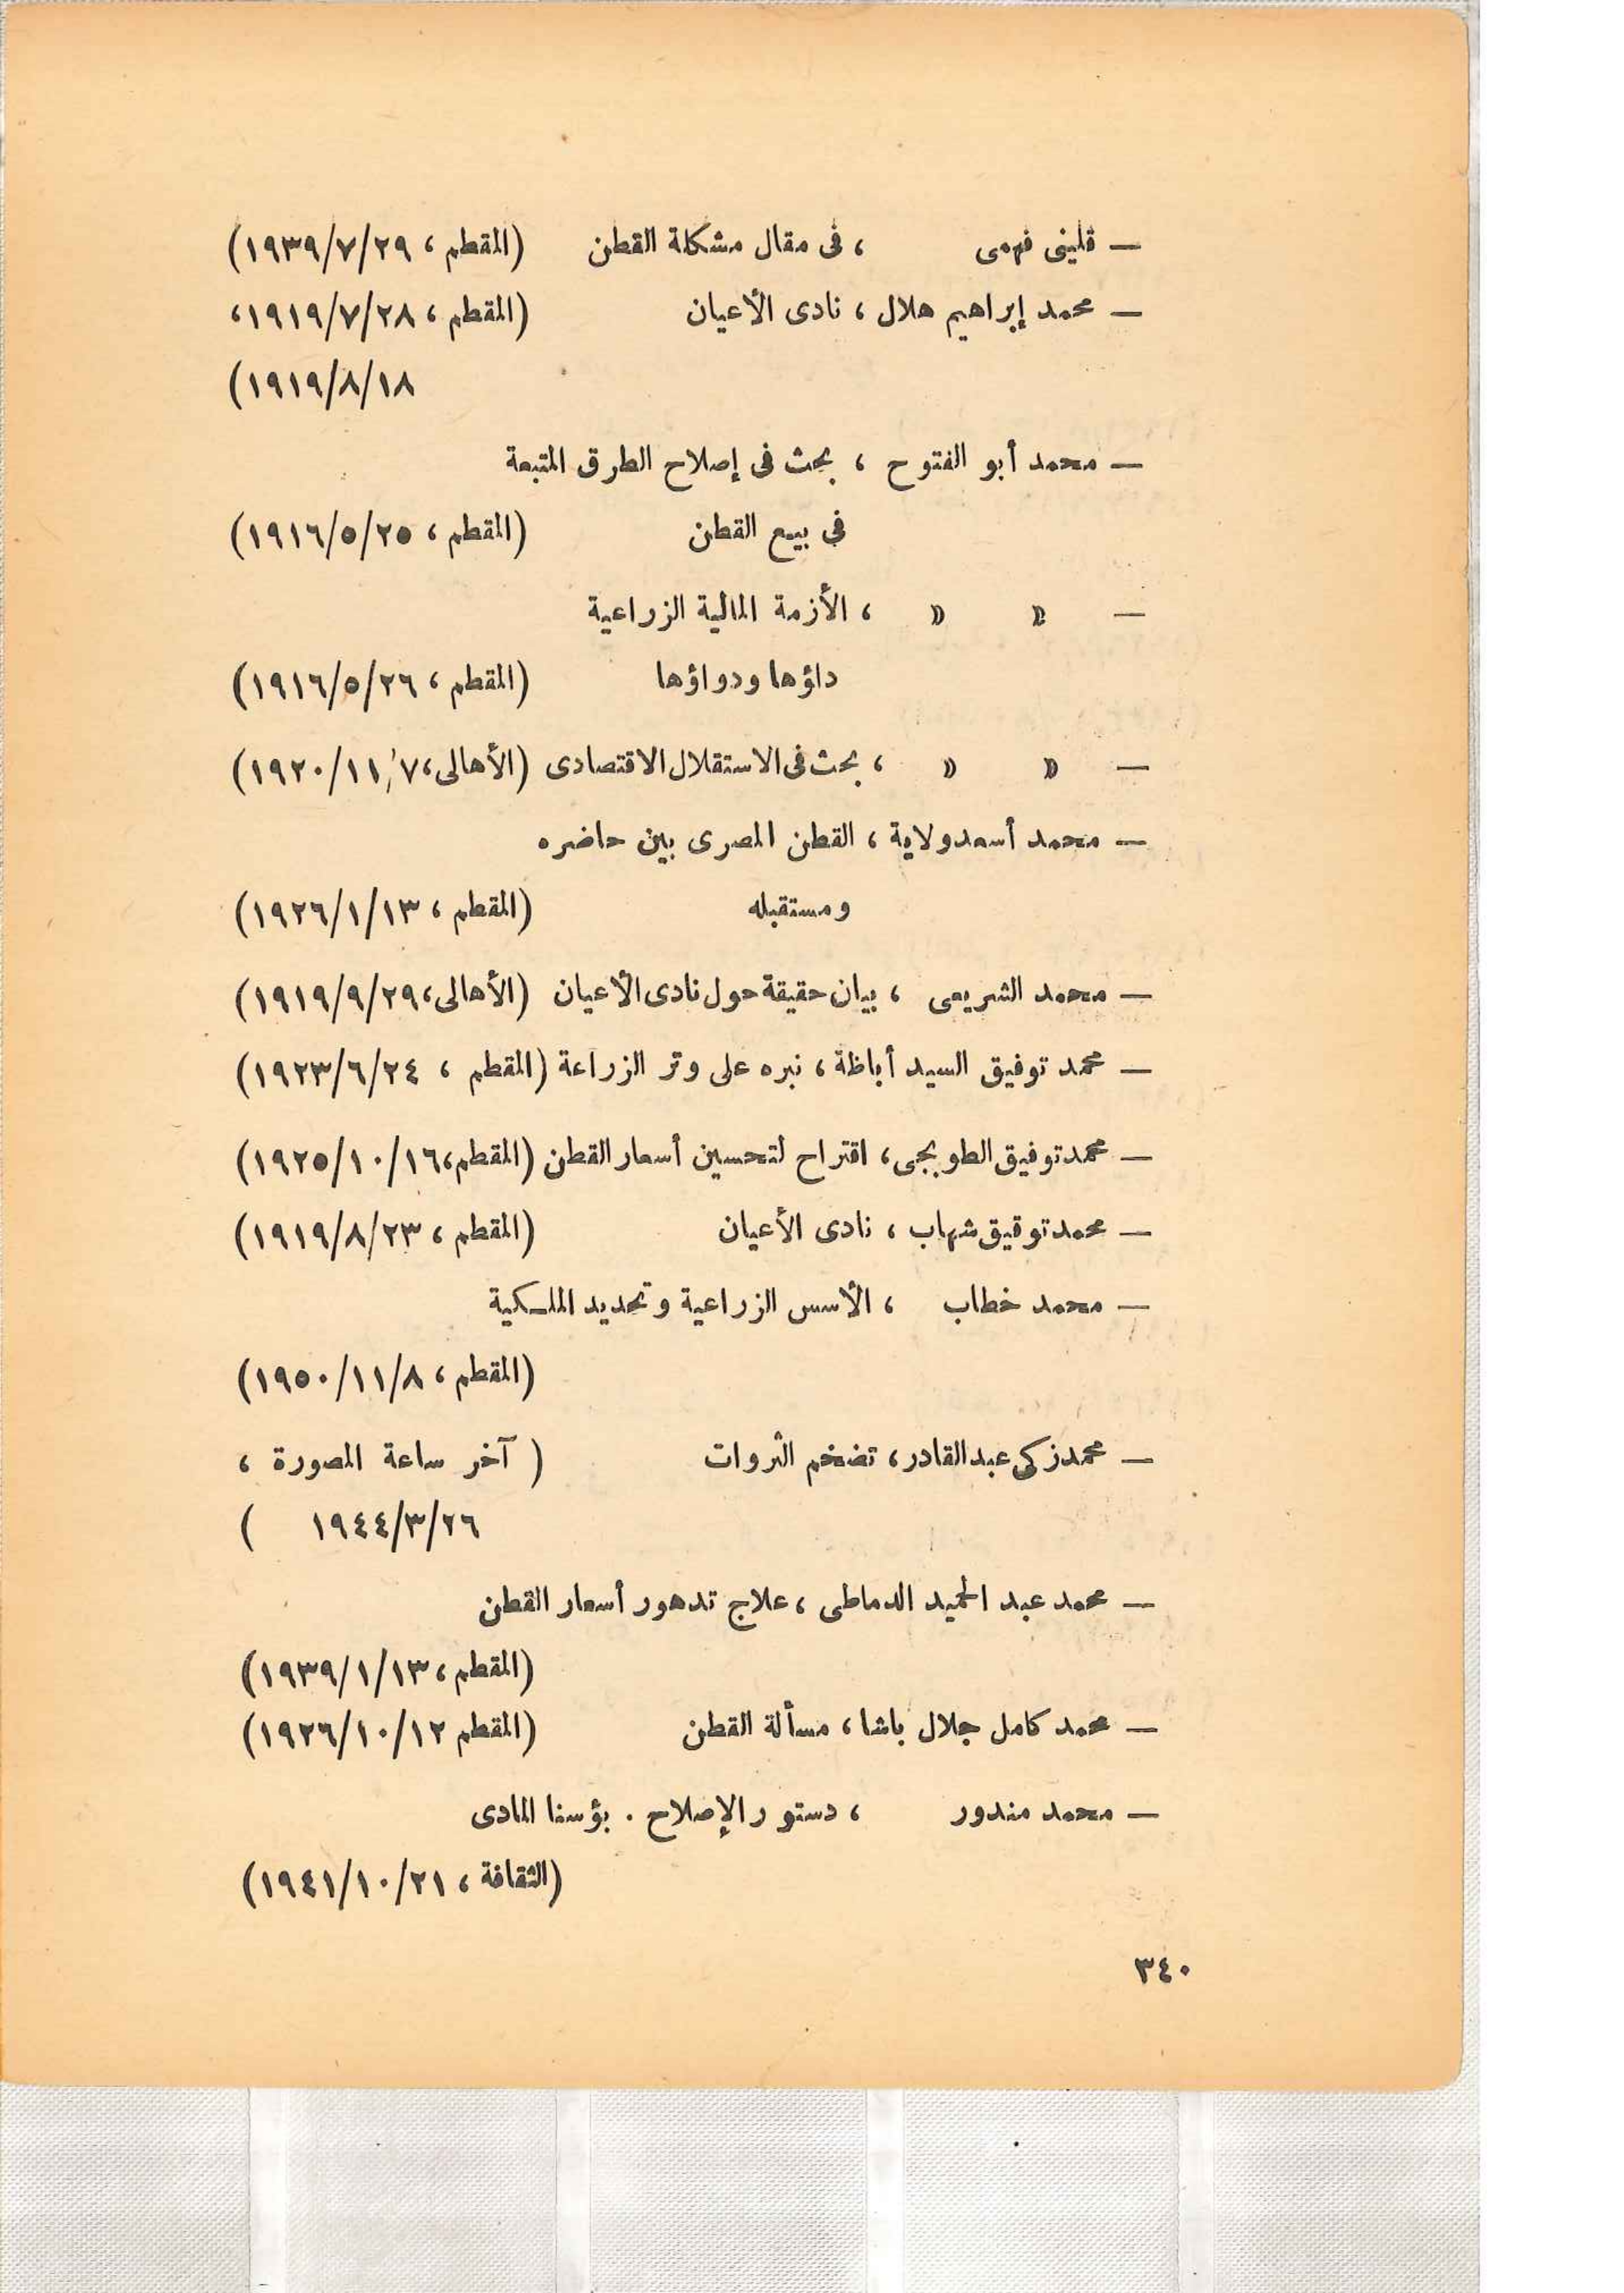 — قلينى فهمى ، فى مقال مشكلة القطن (المقطم ، ١٩٣٩/٧/٢٩)
— محمد إبراهيم هلال ، نادى الأعيان (المقطم ، ١٩١٩/٧/٢٨،
١٩١٩/٨/١٨)
— محمد أبو الفتوح ، بحث فى إصلاح الطرق المتبعة
فى بيع القطن (المقطم ، ١٩١٦/٥/٢٥)
— » » ، الأزمة المالية الزراعية
داؤها ودواؤها (المقطم ، ١٩١٦/٥/٢٦)
— » » ، بحث فى الاستقلال الاقتصادى (الأهالى، ١٩٢٠/١١/٧)
— محمد أسعد ولاية ، القطن المصرى بين حاضره
ومستقبله (المقطم ، ١٩٢٦/١/١٣)
— محمد الشريعى ، بيان حقيقة حول نادى الأعيان (الأهالى، ١٩١٩/٩/٢٩)
— محمد توفيق السيد أباظة ، نبره على وتر الزراعة (المقطم ، ١٩٢٣/٦/٢٤)
— محمد توفيق الطوبجى، اقتراح لتحسين أسعار القطن (المقطم، ١٩٢٥/١٠/١٦)
— محمد توقيق شهاب ، نادى الأعيان (المقطم ، ١٩١٩/٨/٢٣)
— محمد خطاب ، الأسس الزراعية وتحديد الملكية
(المقطم ، ١٩٥٠/١١/٨)
— محمد زكى عبد القادر، تضخم الثروات ( آخر ساعة المصورة ،
١٩٤٤/٣/٢٦ )
— محمد عبد الحميد الدماطى ، علاج تدهور أسعار القطن
(المقطم ، ١٩٣٩/١/١٣)
— محمد كامل جلال باشا ، مسألة القطن (المقطم ١٩٢٦/١٠/١٢)
— محمد مندور ، دستور الإصلاح . بؤسنا المادى
(الثقافة ، ١٩٤١/١٠/٢١)
٣٤٠